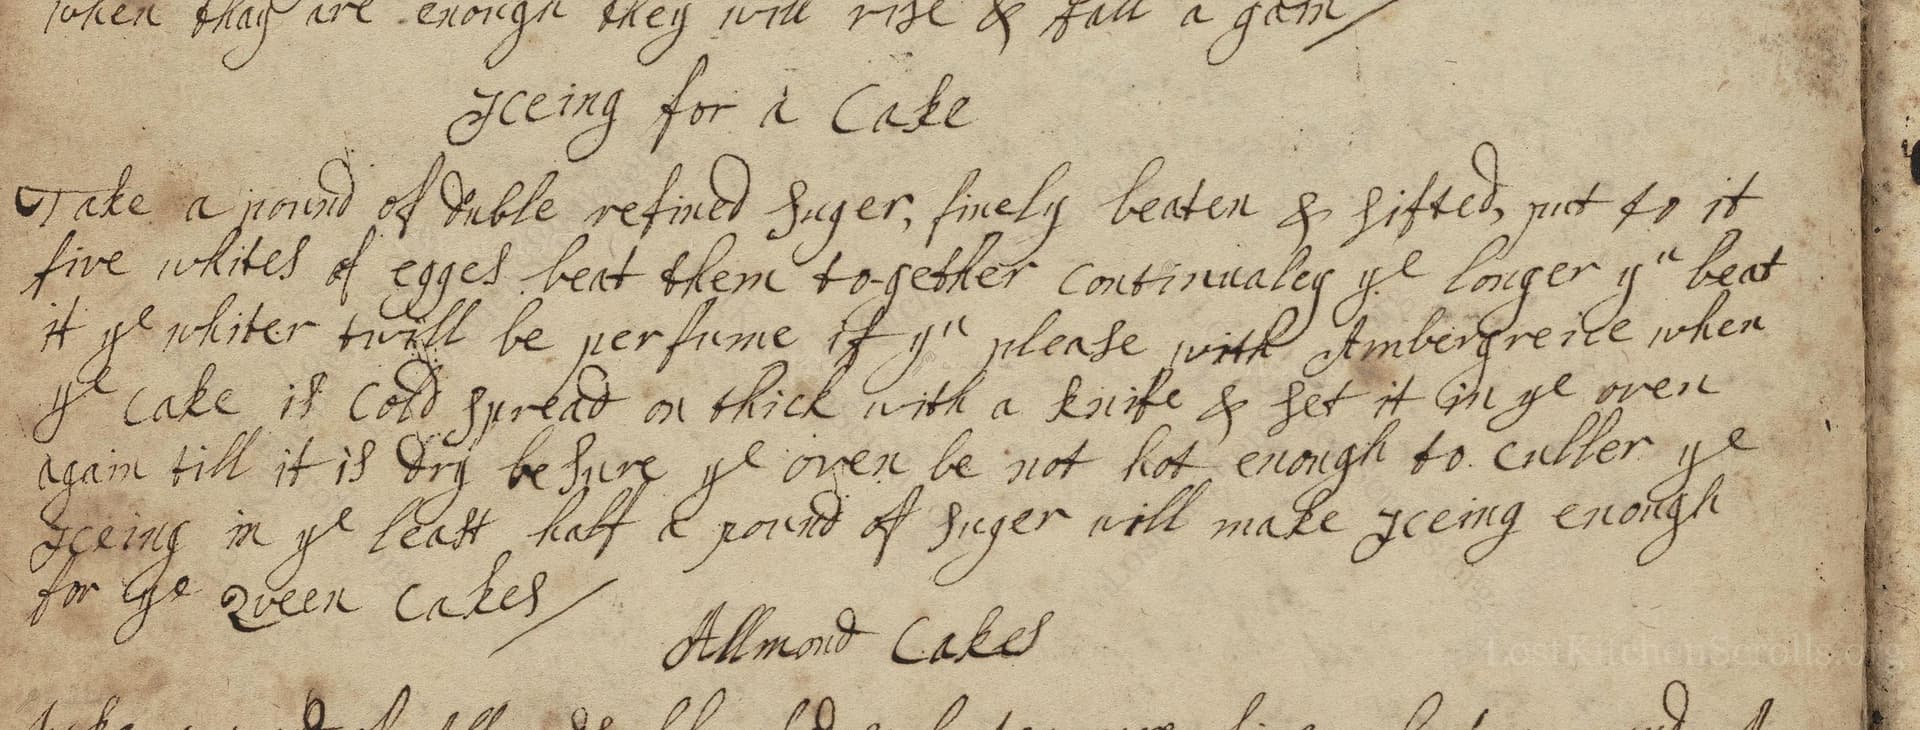 when thay are enough they will rise & fall a gain
Jceing for a Cake
Take a pound of duble refined suger, finely beaten & sifted, put to it
five whites of egges beat them to-gether continualey ye longer yu beat
it ye whiter twill be perfume if yu please with Ambergreice when
ye cake is cold spread on thick with a knife & set it in ye oven
again till it is dry be sure ye oven be not hot enough to culler ye
Jceing in ye least half a pound of suger will make Jceing enough
for ye Qveen Cakes
Allmond Cakes
LostKitchenScrolls.org